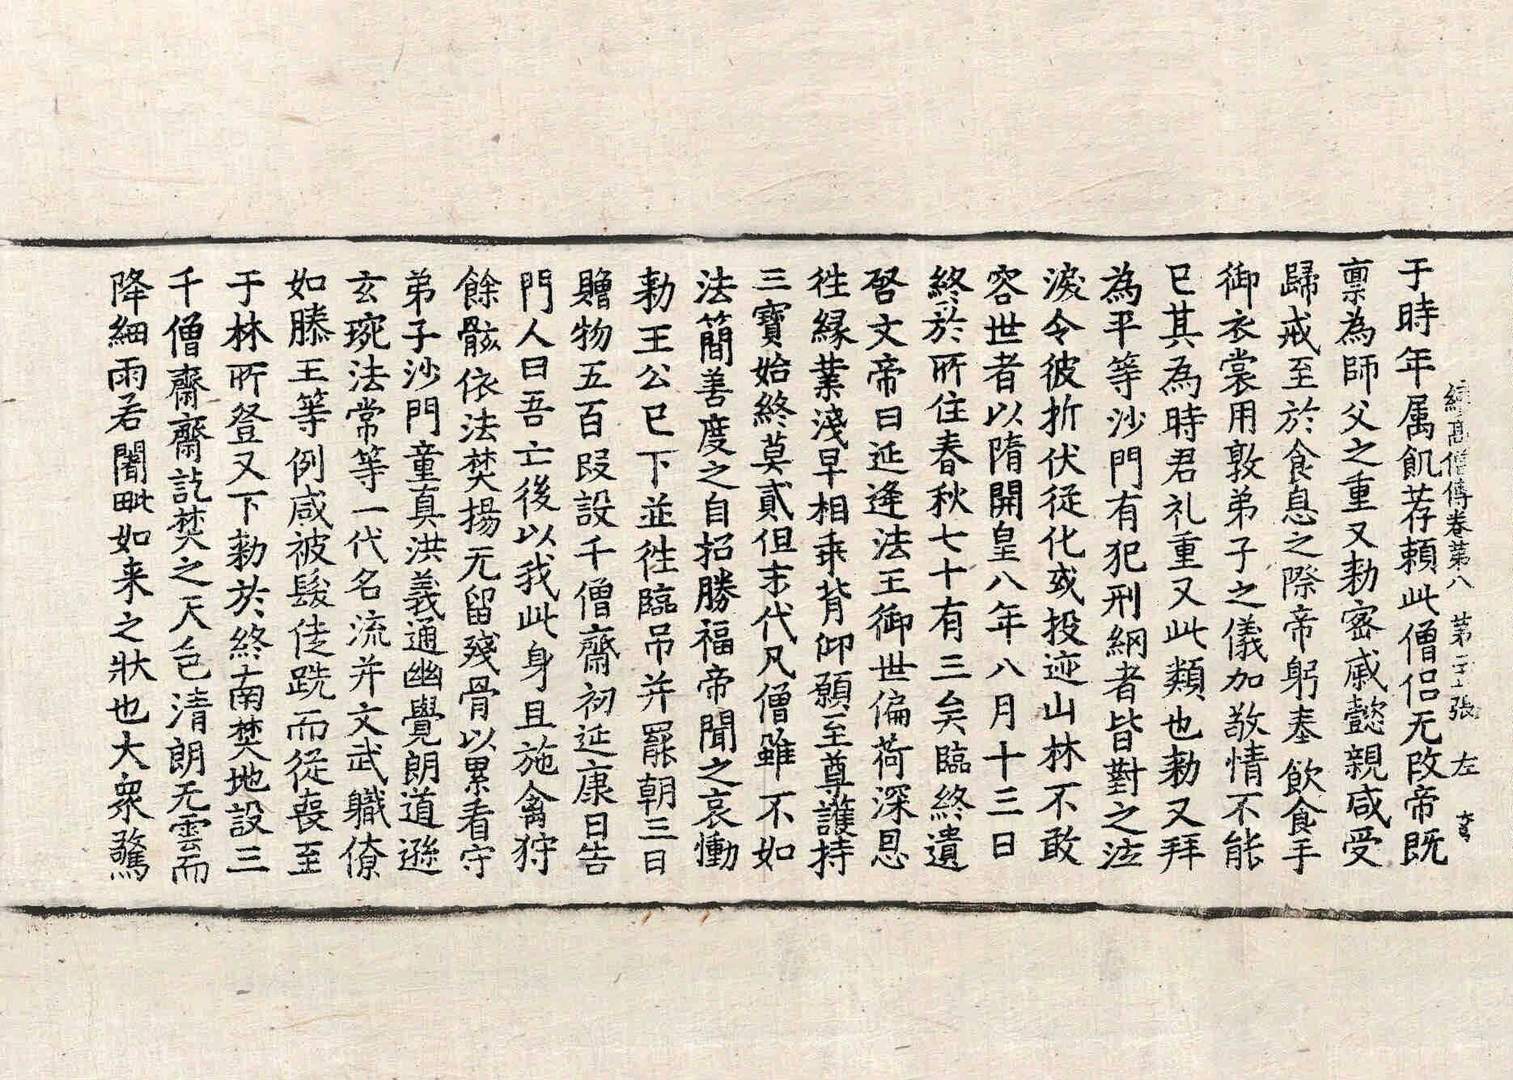 續高僧傳卷第八　第二十張　左
于時年属飢荐賴此僧侣无改帝既
禀為師父之重又勑密戚懿親咸受
歸戒至於食息之際帝躬奉飲食手
御衣裳用敦弟子之儀加敬情不能
已其為時君礼重又此類也勑又拜
為平等沙門有犯刑綱者皆對之泣
淚令彼折伏從化或投迹山林不敢
容世者以隋開皇八年八月十三日
終於所住春秋七十有三矣臨終遺
啓文帝曰延逢法王御世偏荷深恩
徃縁業淺早相乖背仰願至尊護持
三寶始終莫貳但末代凡僧雖不如
法簡善度之自招勝福帝聞之哀慟
勑王公已下並徃臨吊并罷朝三日
贈物五百段設千僧齋初延康日告
門人曰吾亡後以我此身且施禽狩
餘骸依法焚揚无留殘骨以累看守
弟子沙門童真洪義通幽覺朗道遜
玄琬法常等一代名流并文武職僚
如滕王等例咸被髮徒跣而從喪至
于林所登又下勑於終南焚地設三
千僧齋齋訖焚之天色清朗无雲而
降細雨若闍毗如来之狀也大衆驚